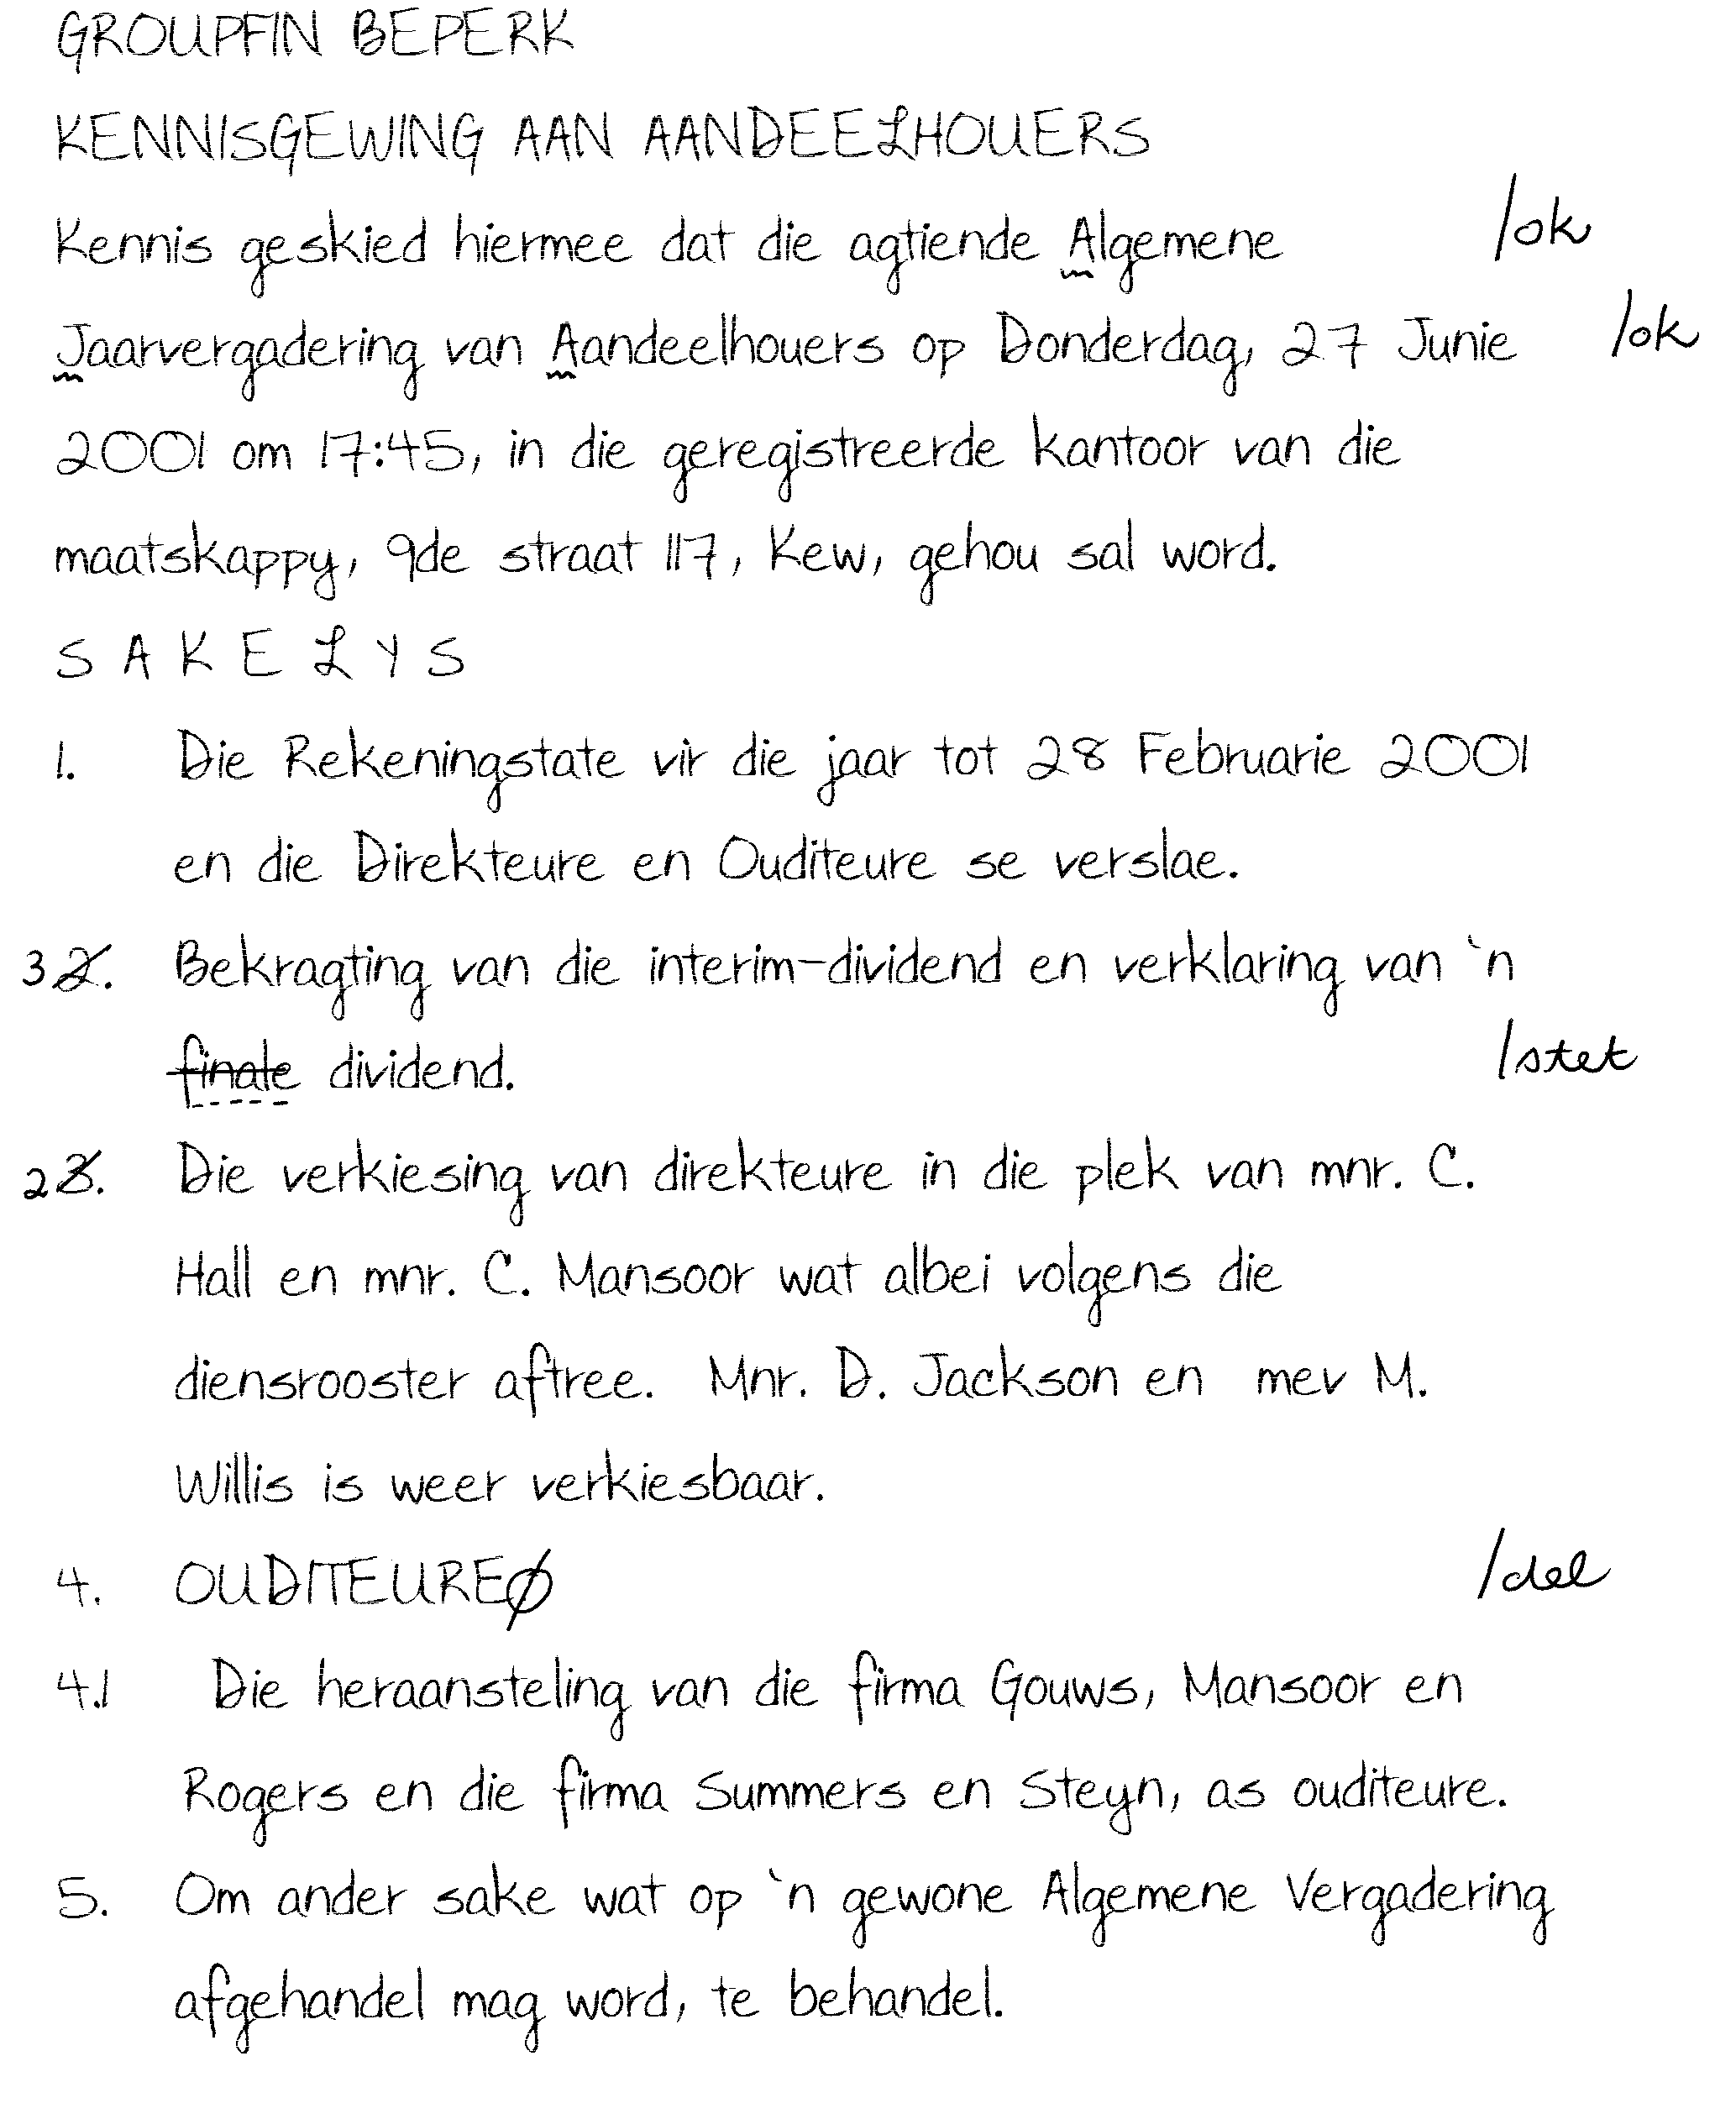 GROUPFIN BEPERK
KENNISGEWING AAN AANDEELHOUERS
Kennis geskied hiermee dat die agtiende Algemene /ok
Jaarvergadering van Aandeelhouers op Donderdag, 27 Junie /ok
2001 om 17:45, in die geregistreerde kantoor van die
maatskappy, 9de straat 117, Kew, gehou sal word.
S A K E L Y S
1. Die Rekeningstate vir die jaar tot 28 Februarie 2001
en die Direkteure en Ouditeure se verslae.
3 2. Bekragting van die interim-dividend en verklaring van 'n
finale dividend. /stet
2 3. Die verkiesing van direkteure in die plek van mnr. C.
Hall en mnr. C. Mansoor wat albei volgens die
diensrooster aftree. Mnr. D. Jackson en mev M.
Willis is weer verkiesbaar.
4. OUDITEURE0 /del
4.1 Die heraansteling van die firma Gouws, Mansoor en
Rogers en die firma Summers en Steyn, as ouditeure.
5. Om ander sake wat op 'n gewone Algemene Vergadering
afgehandel mag word, te behandel.